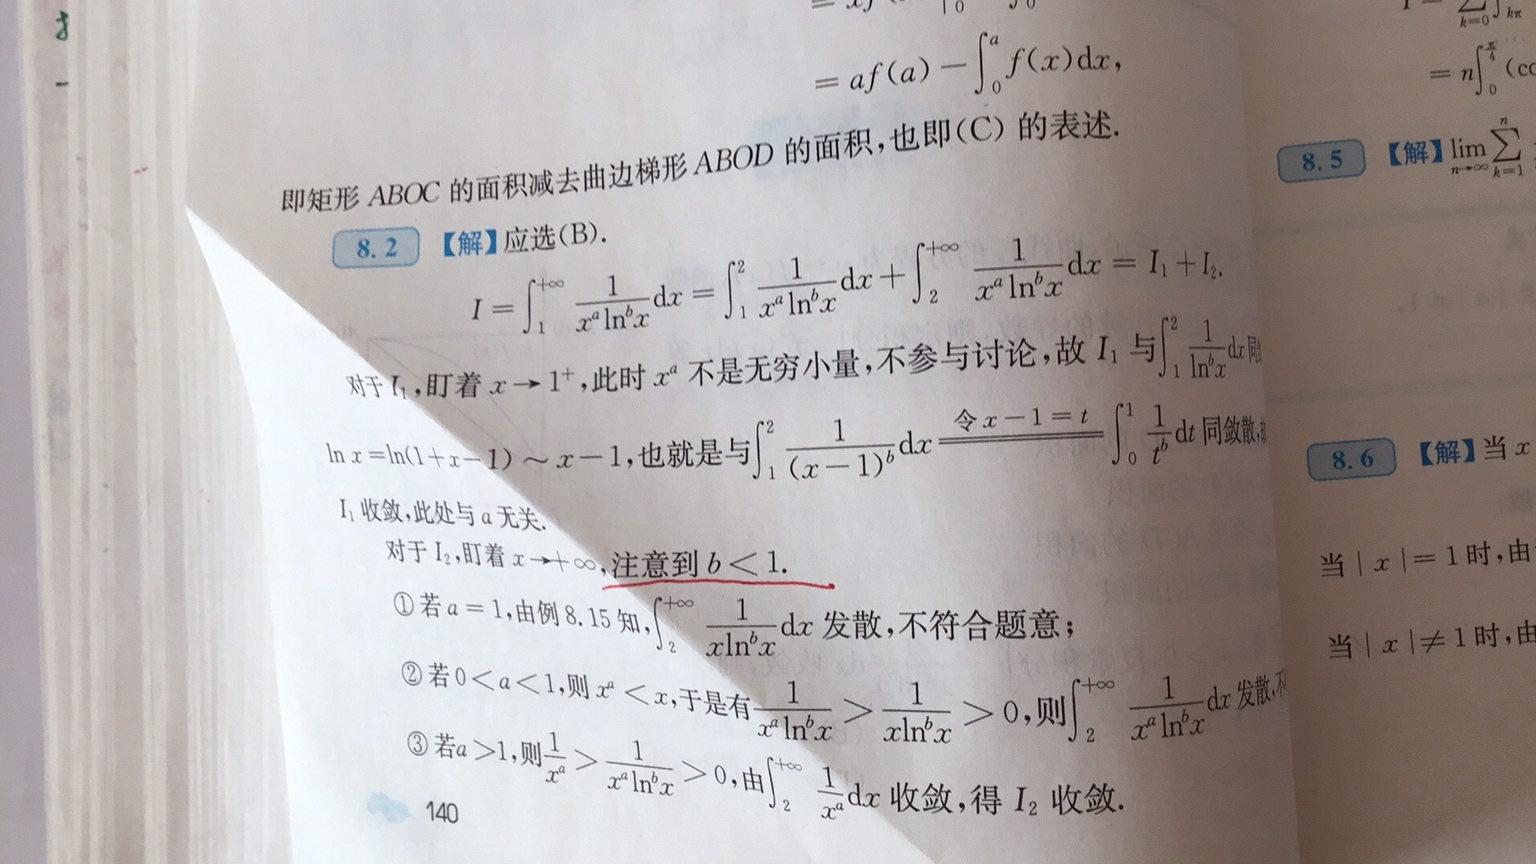 = af(a) − ∫₀ᵃ f(x)dx,
即矩形 ABOC 的面积减去曲边梯形 ABOD 的面积,也即(C) 的表述.
8.2 【解】应选(B).
I = ∫₁^{+∞} 1/(xᵃ lnᵇx) dx = ∫₁² 1/(xᵃ lnᵇx) dx + ∫₂^{+∞} 1/(xᵃ lnᵇx) dx = I₁ + I₂.
对于 I₁,盯着 x → 1⁺,此时 xᵃ 不是无穷小量,不参与讨论,故 I₁ 与∫₁² 1/(lnᵇx) dx 同
ln x = ln(1+x−1) ~ x−1,也就是与∫₁² 1/(x−1)ᵇ dx 令 x−1=t ∫₀¹ 1/tᵇ dt 同敛散,
I₁ 收敛,此处与 a 无关.
对于 I₂,盯着 x→+∞,注意到 b < 1.
①若 a = 1,由例 8.15 知,∫₂^{+∞} 1/(x lnᵇx) dx 发散,不符合题意;
②若 0 < a < 1,则 xᵃ < x,于是有 1/(xᵃ lnᵇx) > 1/(x lnᵇx) > 0,则∫₂^{+∞} 1/(xᵃ lnᵇx) dx 发散,不
③若 a > 1,则 1/xᵃ > 1/(xᵃ lnᵇx) > 0,由∫₂^{+∞} 1/xᵃ dx 收敛,得 I₂ 收敛.
140
= n∫₀^{π/4}
8.5 【解】lim_{n→∞} ∑_{k=1}^{n}
8.6 【解】当 x
当 | x | = 1 时,由
当 | x | ≠ 1 时,由